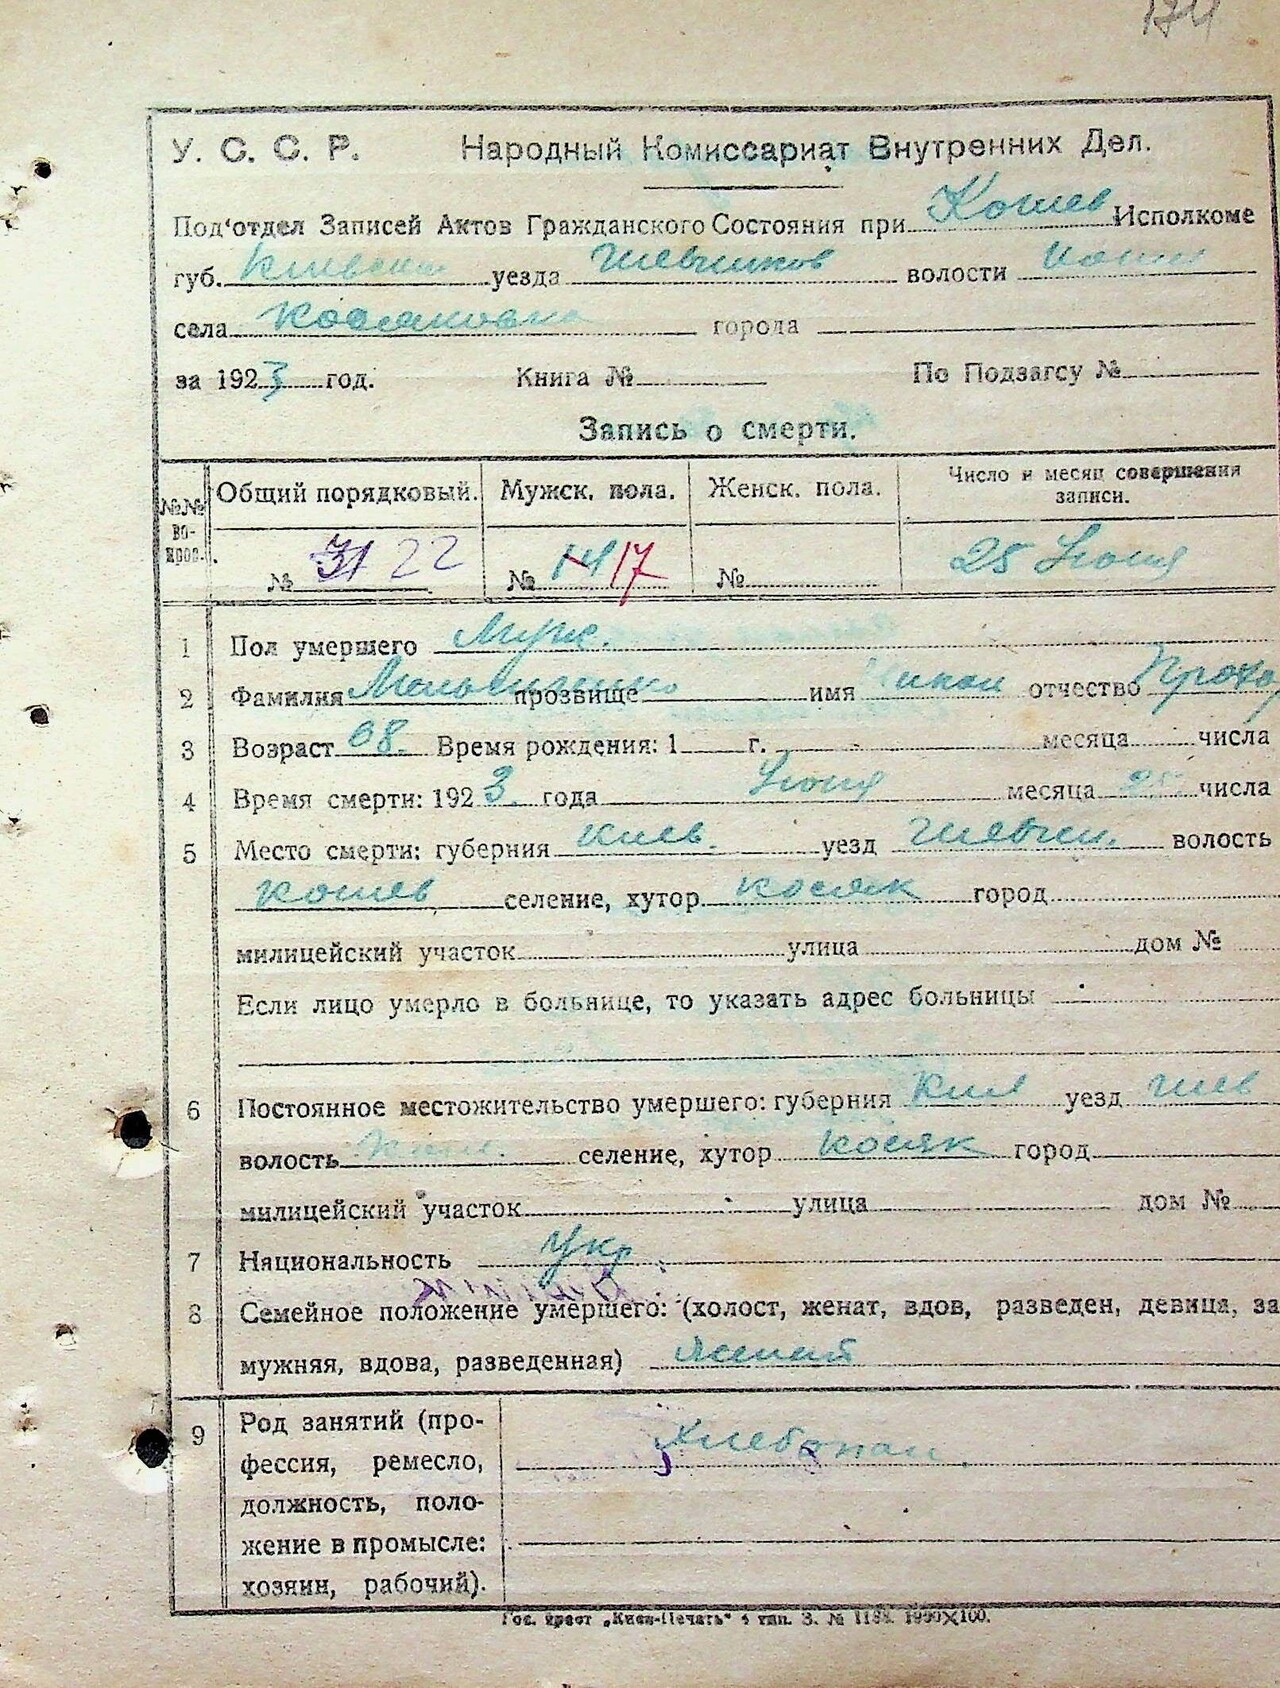 174
У. С. С. Р. Народный Комиссариат Внутренних Дел.
Под'отдел Записей Актов Гражданского Состояния при Кошев Исполкоме
губ. Киевская уезда Шевченков волости Кошев
села Косяковка города
за 1923 год. Книга № По Подзагсу №
Запись о смерти.
№№ вопрос. Общий порядковый. Мужск. пола. Женск. пола. Число и месяц совершения записи.
№ 31 22 № 14 17 № 25 Июня
1 Пол умершего Муж.
2 Фамилия прозвище имя отчество Прохо
3 Возраст 68. Время рождения: 1 г. месяца числа
4 Время смерти: 1923. года Июня месяца 25 числа
5 Место смерти: губерния Киев. уезд Шевчен. волость
Кошев селение, хутор Косяк город
милицейский участок улица дом №
Если лицо умерло в больнице, то указать адрес больницы
6 Постоянное местожительство умершего: губерния Киев уезд Шев
волость селение, хутор Косяк город
милицейский участок улица дом №
7 Национальность Укр.
8 Семейное положение умершего: (холост, женат, вдов, разведен, девица, за
мужняя, вдова, разведенная) Женат
9 Род занятий (про-
фессия, ремесло, Хлебопаш.
должность, поло-
жение в промысле:
хозяин, рабочий).
Гос. трест „Киев-Печать" 4 тип. З. № 1188. 1990×100.